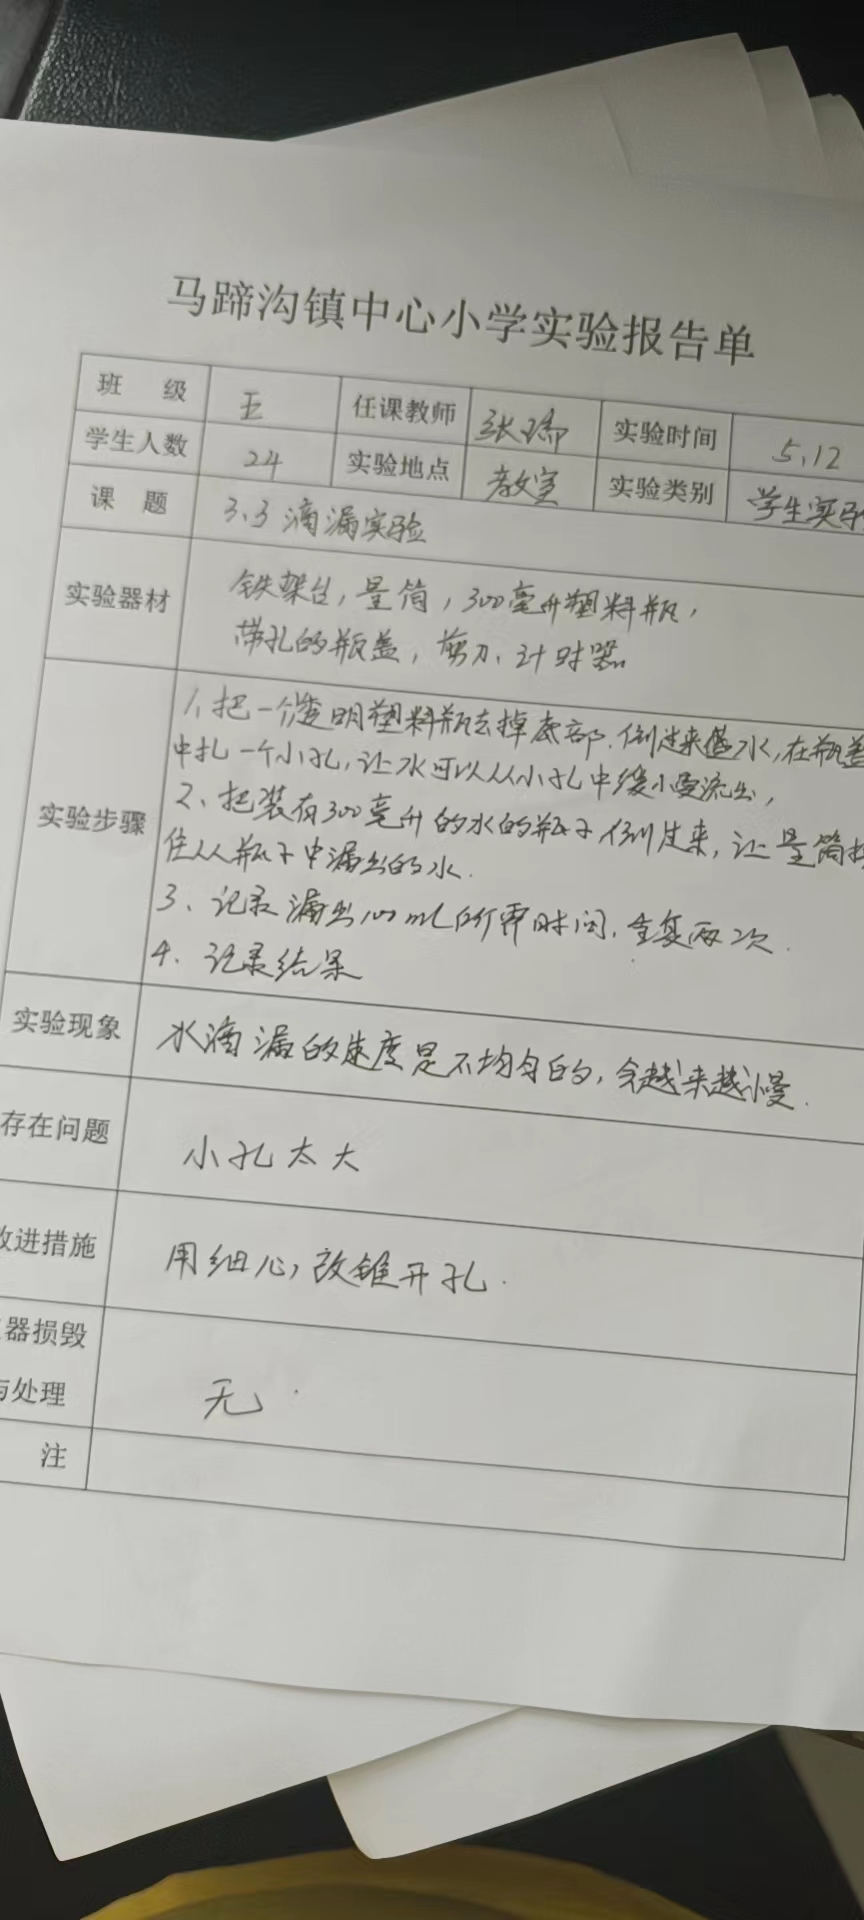 马蹄沟镇中心小学实验报告单
班 级 五 任课教师 张瑞 实验时间 5.12
学生人数 24 实验地点 教室 实验类别 学生实验
课 题 3.3 滴漏实验
实验器材 铁架台，量筒，300毫升塑料瓶，
带孔的瓶盖，剪刀、计时器
实验步骤 1、把一个透明塑料瓶去掉底部，倒过来盛水，在瓶盖
中扎一个小孔，让水可以从小孔中缓慢流出，
2、把装有300毫升的水的瓶子倒过来，让量筒接
住从瓶子中漏出的水.
3、记录漏出100mL所需时间，重复两次.
4、记录结果
实验现象 水滴漏的速度是不均匀的，会越来越慢.
存在问题 小孔太大
改进措施 用细心，改锥开孔.
器损毁
与处理 无
注